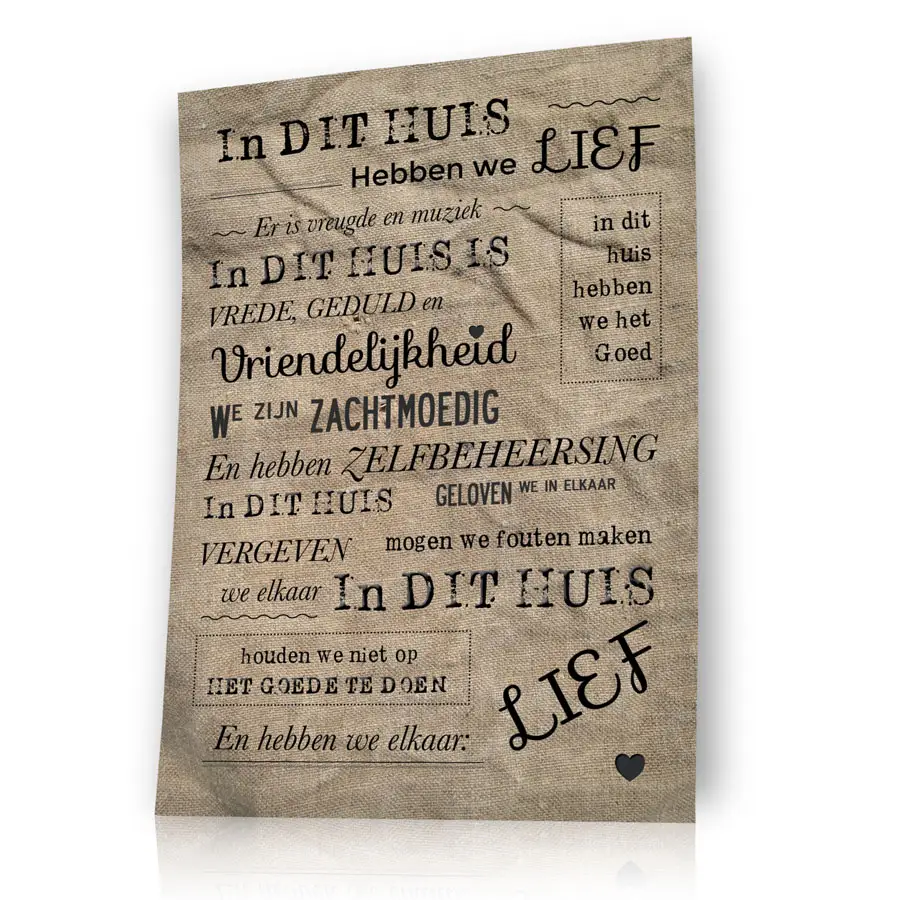 In DIT HUIS
Hebben we LIEF
Er is vreugde en muziek
In DIT HUIS IS
VREDE, GEDULD en
Vriendelijkheid
in dit
huis
hebben
we het
Goed
WE ZIJN ZACHTMOEDIG
En hebben ZELFBEHEERSING
In DIT HUIS
GELOVEN WE IN ELKAAR
VERGEVEN
we elkaar
mogen we fouten maken
In DIT HUIS
houden we niet op
HET GOEDE TE DOEN
En hebben we elkaar:
LIEF